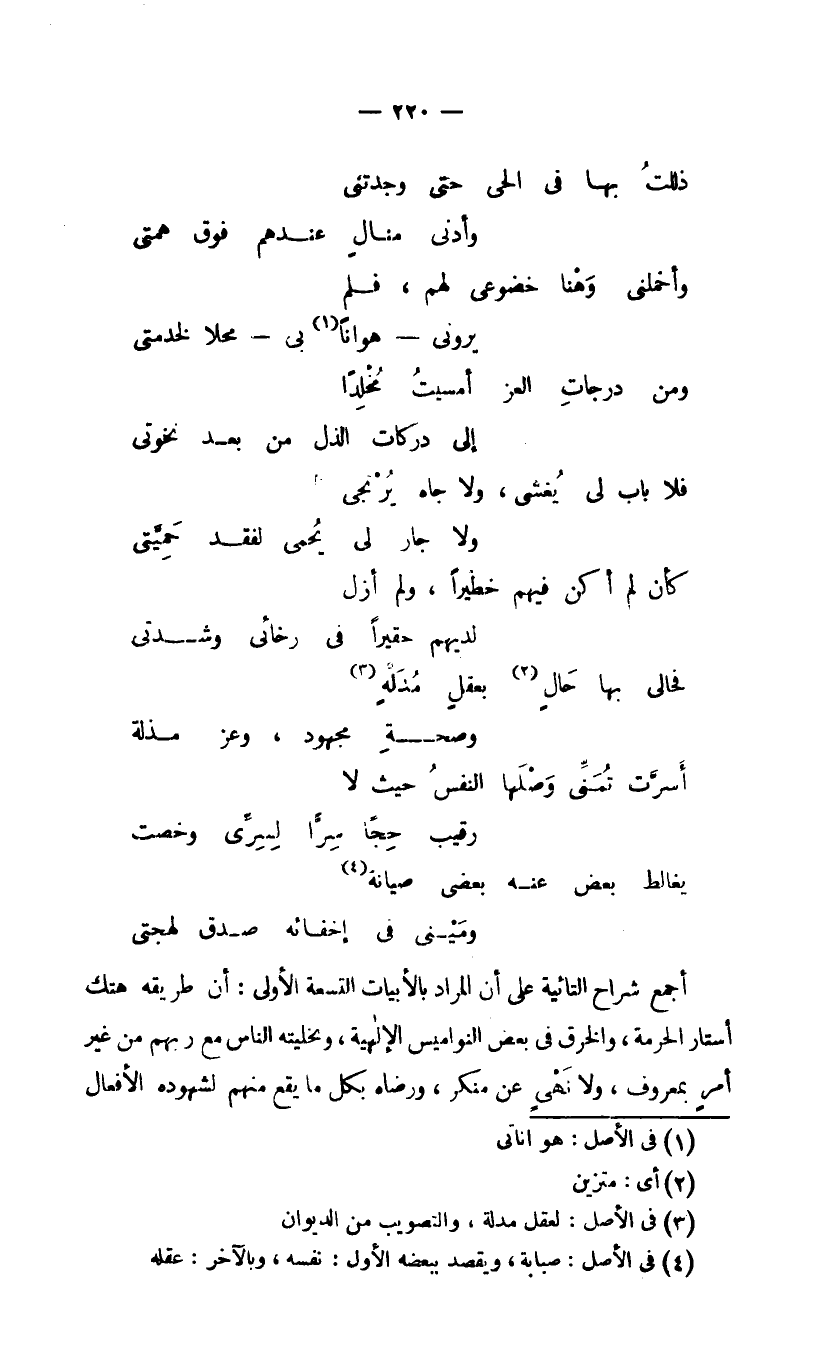 — ٢٢٠ —
ذللتُ بهـا فى الحى حتى وجدتنى
وأدنى منـالٍ عنـدهم فوق همتى
وأخملنى وَهْنا خضوعى لهم ، فـلم
يرونى — هواناً(١) بى — محلا لخدمتى
ومن درجاتِ العز أمسيتُ مُخْلِدًا
إلى دركات الذل من بعـد نخوتى
فلا باب لى يُغشى ، ولا جاه يُرْتجى
ولا جار لى يُحمى لفقـد حَمِيَّتى
كأن لم أكن فيهم خطيراً ، ولم أزل
لديهم حقيراً فى رخائى وشـدتى
فحالى بها حَالٍ (٢) بعقلٍ مُدَلَّهٍ (٣)
وصحـةِ مجهود ، وعز مـذلة
أَسرَّت تُمَنِّى وَصْلَها النفسُ حيث لا
رقيب حِجًا سِرًّا لِسِرِّى وخصت
يغالط بعض عنـه بعضى صيانة(٤)
ومَيْـنى فى إخفـائه صـدق لهجتى
أجمع شراح التائية على أن المراد بالأبيات التسعة الأولى : أن طريقه هتك
أستار الحرمة ، والخرق فى بعض النواميس الإلٰهية ، وتخليته الناس مع ربهم من غير
أمرٍ بمعروف ، ولا نَهْىٍ عن منكر ، ورضاه بكل ما يقع منهم لشهوده الأفعال
(١) فى الأصل : هو اناتى
(٢) أى : متزين
(٣) فى الأصل : لعقل مدلة ، والتصويب من الديوان
(٤) فى الأصل : صبابة ، ويقصد ببعضه الأول : نفسه ، وبالآخر : عقله